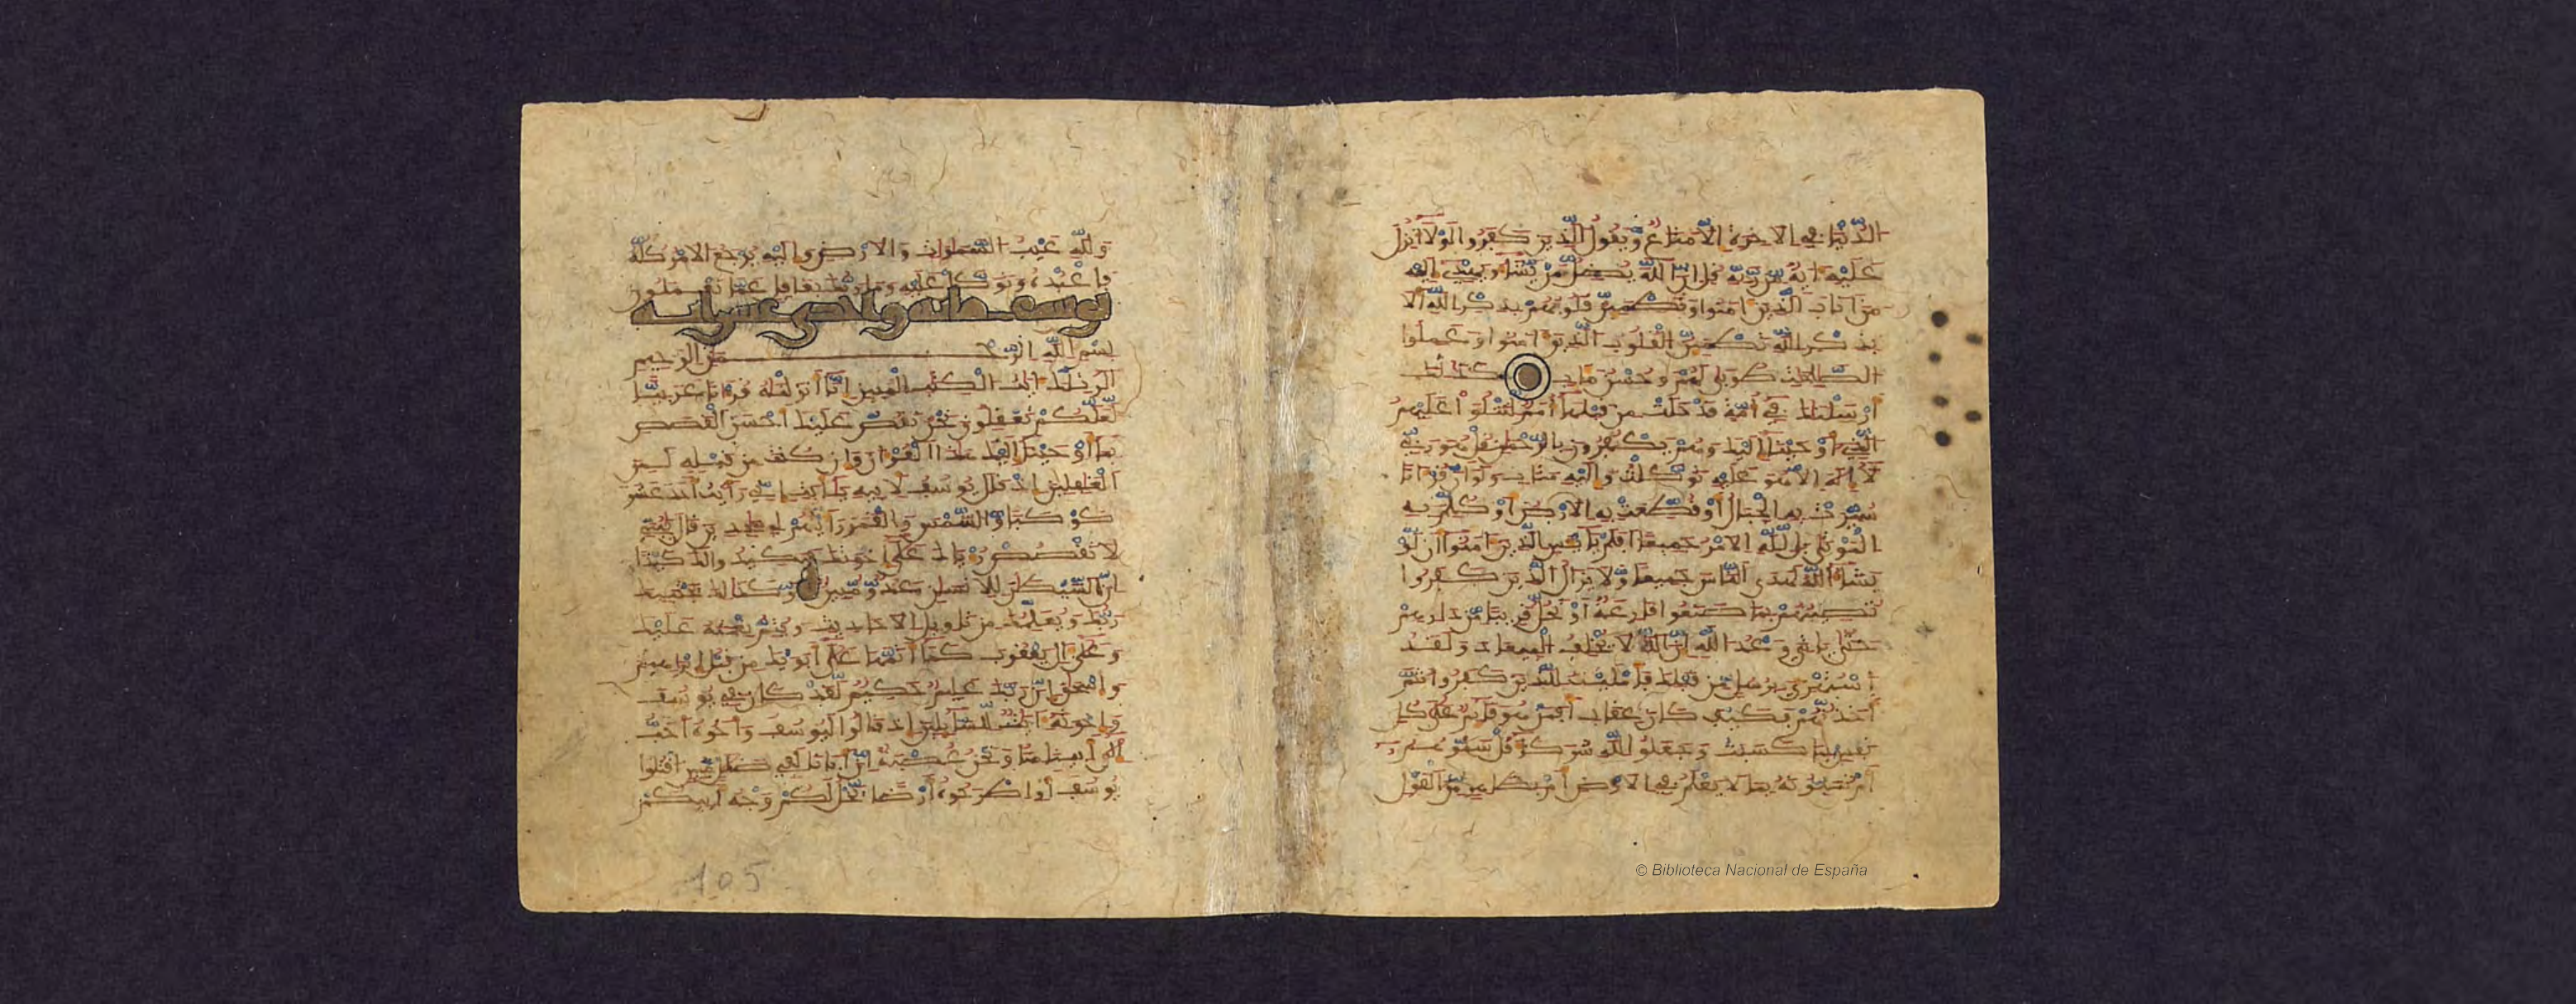 الدنيا في الاخرة الا متاع ويقول الذين كفروا لولا انزل
عليه اية من ربه قل ان الله يضل من يشاء ويهدي اليه
من اناب الذين امنوا وتطمئن قلوبهم بذكر الله الا
بذكر الله تطمئن القلوب الذين امنوا وعملوا
الصلحت طوبى لهم وحسن ماب كذلك
ارسلنك في امة قد خلت من قبلها امم لتتلوا عليهم
الذي اوحينا اليك وهم يكفرون بالرحمن قل هو ربي
لا اله الا هو عليه توكلت واليه متاب ولو ان قرانا
سيرت به الجبال او قطعت به الارض او كلم به
الموتى بل لله الامر جميعا افلم يايس الذين امنوا ان لو
يشاء الله لهدى الناس جميعا ولا يزال الذين كفروا
تصيبهم بما صنعوا قارعة او تحل قريبا من دارهم
حتى ياتي وعد الله ان الله لا يخلف الميعاد ولقد
استهزي برسل من قبلك فامليت للذين كفروا ثم
اخذتهم فكيف كان عقاب افمن هو قايم على كل
نفس بما كسبت وجعلوا لله شركاء قل سموهم
ام تنبونه بما لا يعلم في الارض ام بظهر من القول
ولله غيب السموات والارض واليه يرجع الامر كله
فاعبده وتوكل عليه وما ربك بغفل عما تعملون
يوسف مائة واحدى عشر اية
بسم الله الرحمن الرحيم
الر تلك ايت الكتب المبين انا انزلنه قرانا عربيا
لعلكم تعقلون نحن نقص عليك احسن القصص
بما اوحينا اليك هذا القران وان كنت من قبله لمن
الغفلين اذ قال يوسف لابيه يابت اني رايت احد عشر
كوكبا والشمس والقمر رايتهم لي سجدين قال يبني
لا تقصص رءياك على اخوتك فيكيدوا لك كيدا
ان الشيطن للانسن عدو مبين وكذلك يجتبيك
ربك ويعلمك من تاويل الاحاديث ويتم نعمته عليك
وعلى ال يعقوب كما اتمها على ابويك من قبل ابرهيم
واسحق ان ربك عليم حكيم لقد كان في يوسف
واخوته ايت للسايلين اذ قالوا ليوسف واخوه احب
الى ابينا منا ونحن عصبة ان ابانا لفي ضلل مبين اقتلوا
يوسف او اطرحوه ارضا يخل لكم وجه ابيكم
105
© Biblioteca Nacional de España